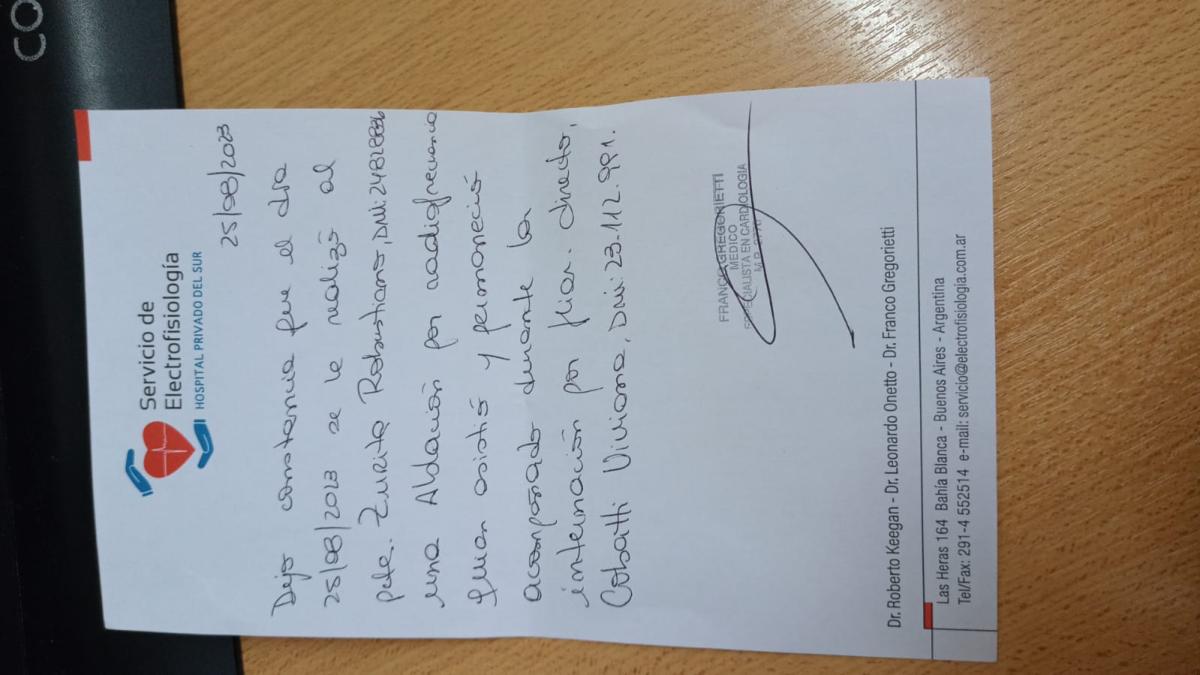 CO
Servicio de
Electrofisiología
HOSPITAL PRIVADO DEL SUR
25/08/2023
Dejo constancia que el día
25/08/2023 se le realizó al
pcte. Zurita Robustiano, DNI:
una Ablación por radiofrecuencia
quien asistió y permaneció
acompañado durante la
internación por fliar. directo,
Viviana, DNI: 23.112.991.
FRANCO GREGORIETTI
MEDICO
ESPECIALISTA EN CARDIOLOGIA
Dr. Roberto Keegan - Dr. Leonardo Onetto - Dr. Franco Gregorietti
Las Heras 164 Bahía Blanca - Buenos Aires - Argentina
Tel/Fax: 291-4 552514 e-mail: servicio@electrofisiologia.com.ar